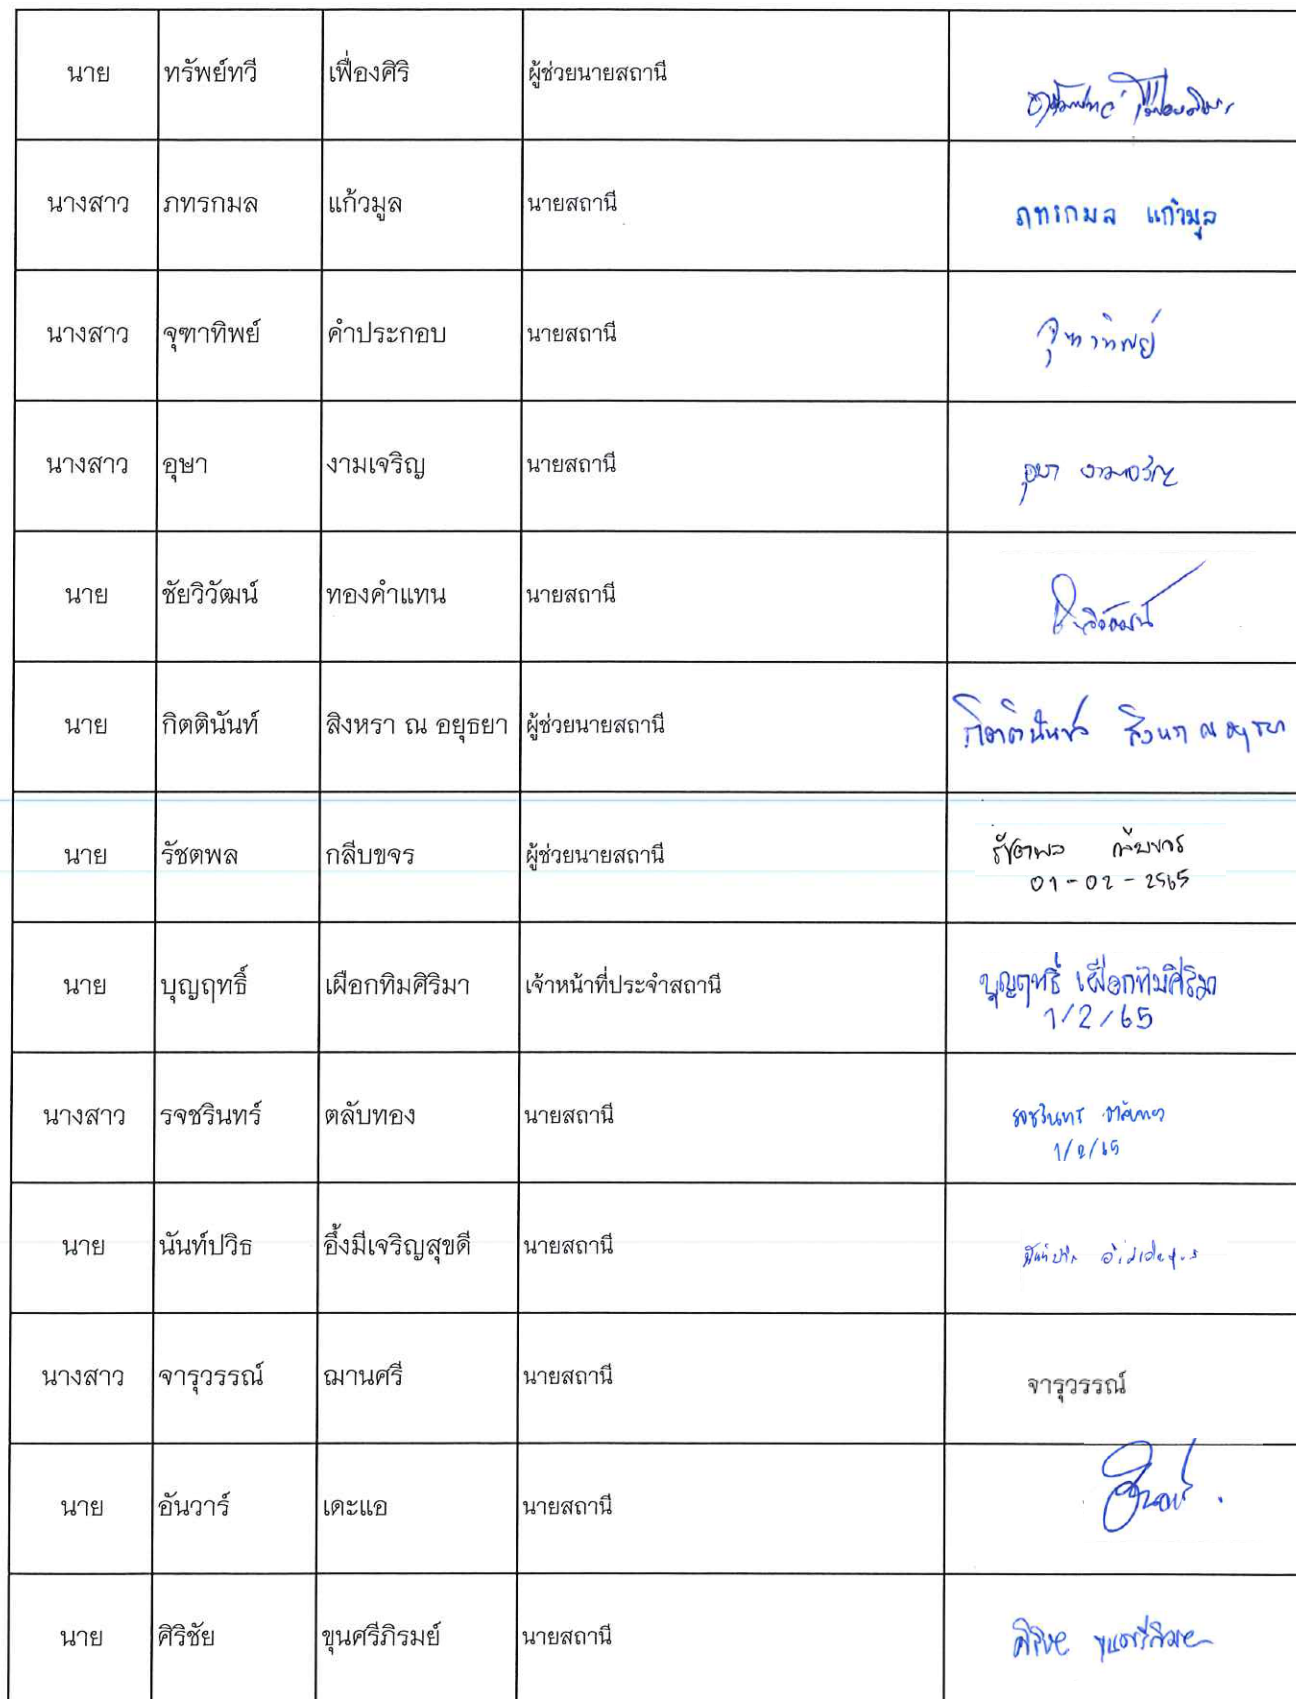 นาย ทรัพย์ทวี เฟื่องศิริ ผู้ช่วยนายสถานี
นางสาว ภทรกมล แก้วมูล นายสถานี ภทรกมล แก้วมูล
นางสาว จุฑาทิพย์ คำประกอบ นายสถานี จุฑาทิพย์
นางสาว อุษา งามเจริญ นายสถานี อุษา งามเจริญ
นาย ชัยวิวัฒน์ ทองคำแทน นายสถานี
นาย กิตตินันท์ สิงหรา ณ อยุธยา ผู้ช่วยนายสถานี กิตตินันท์ สิงหรา ณ อยุธยา
นาย รัชตพล กลีบขจร ผู้ช่วยนายสถานี รัชตพล กลีบขจร
01-02-2565
นาย บุญฤทธิ์ เผือกทิมศิริมา เจ้าหน้าที่ประจำสถานี บุญฤทธิ์ เผือกทิมศิริมา
1/2/65
นางสาว รจชรินทร์ ตลับทอง นายสถานี รจชรินทร์ ตลับทอง
1/2/65
นาย นันท์ปวิธ อึ้งมีเจริญสุขดี นายสถานี
นางสาว จารุวรรณ์ ฌานศรี นายสถานี จารุวรรณ์
นาย อันวาร์ เดะแอ นายสถานี
นาย ศิริชัย ขุนศรีภิรมย์ นายสถานี ศิริชัย ขุนศรีภิรมย์